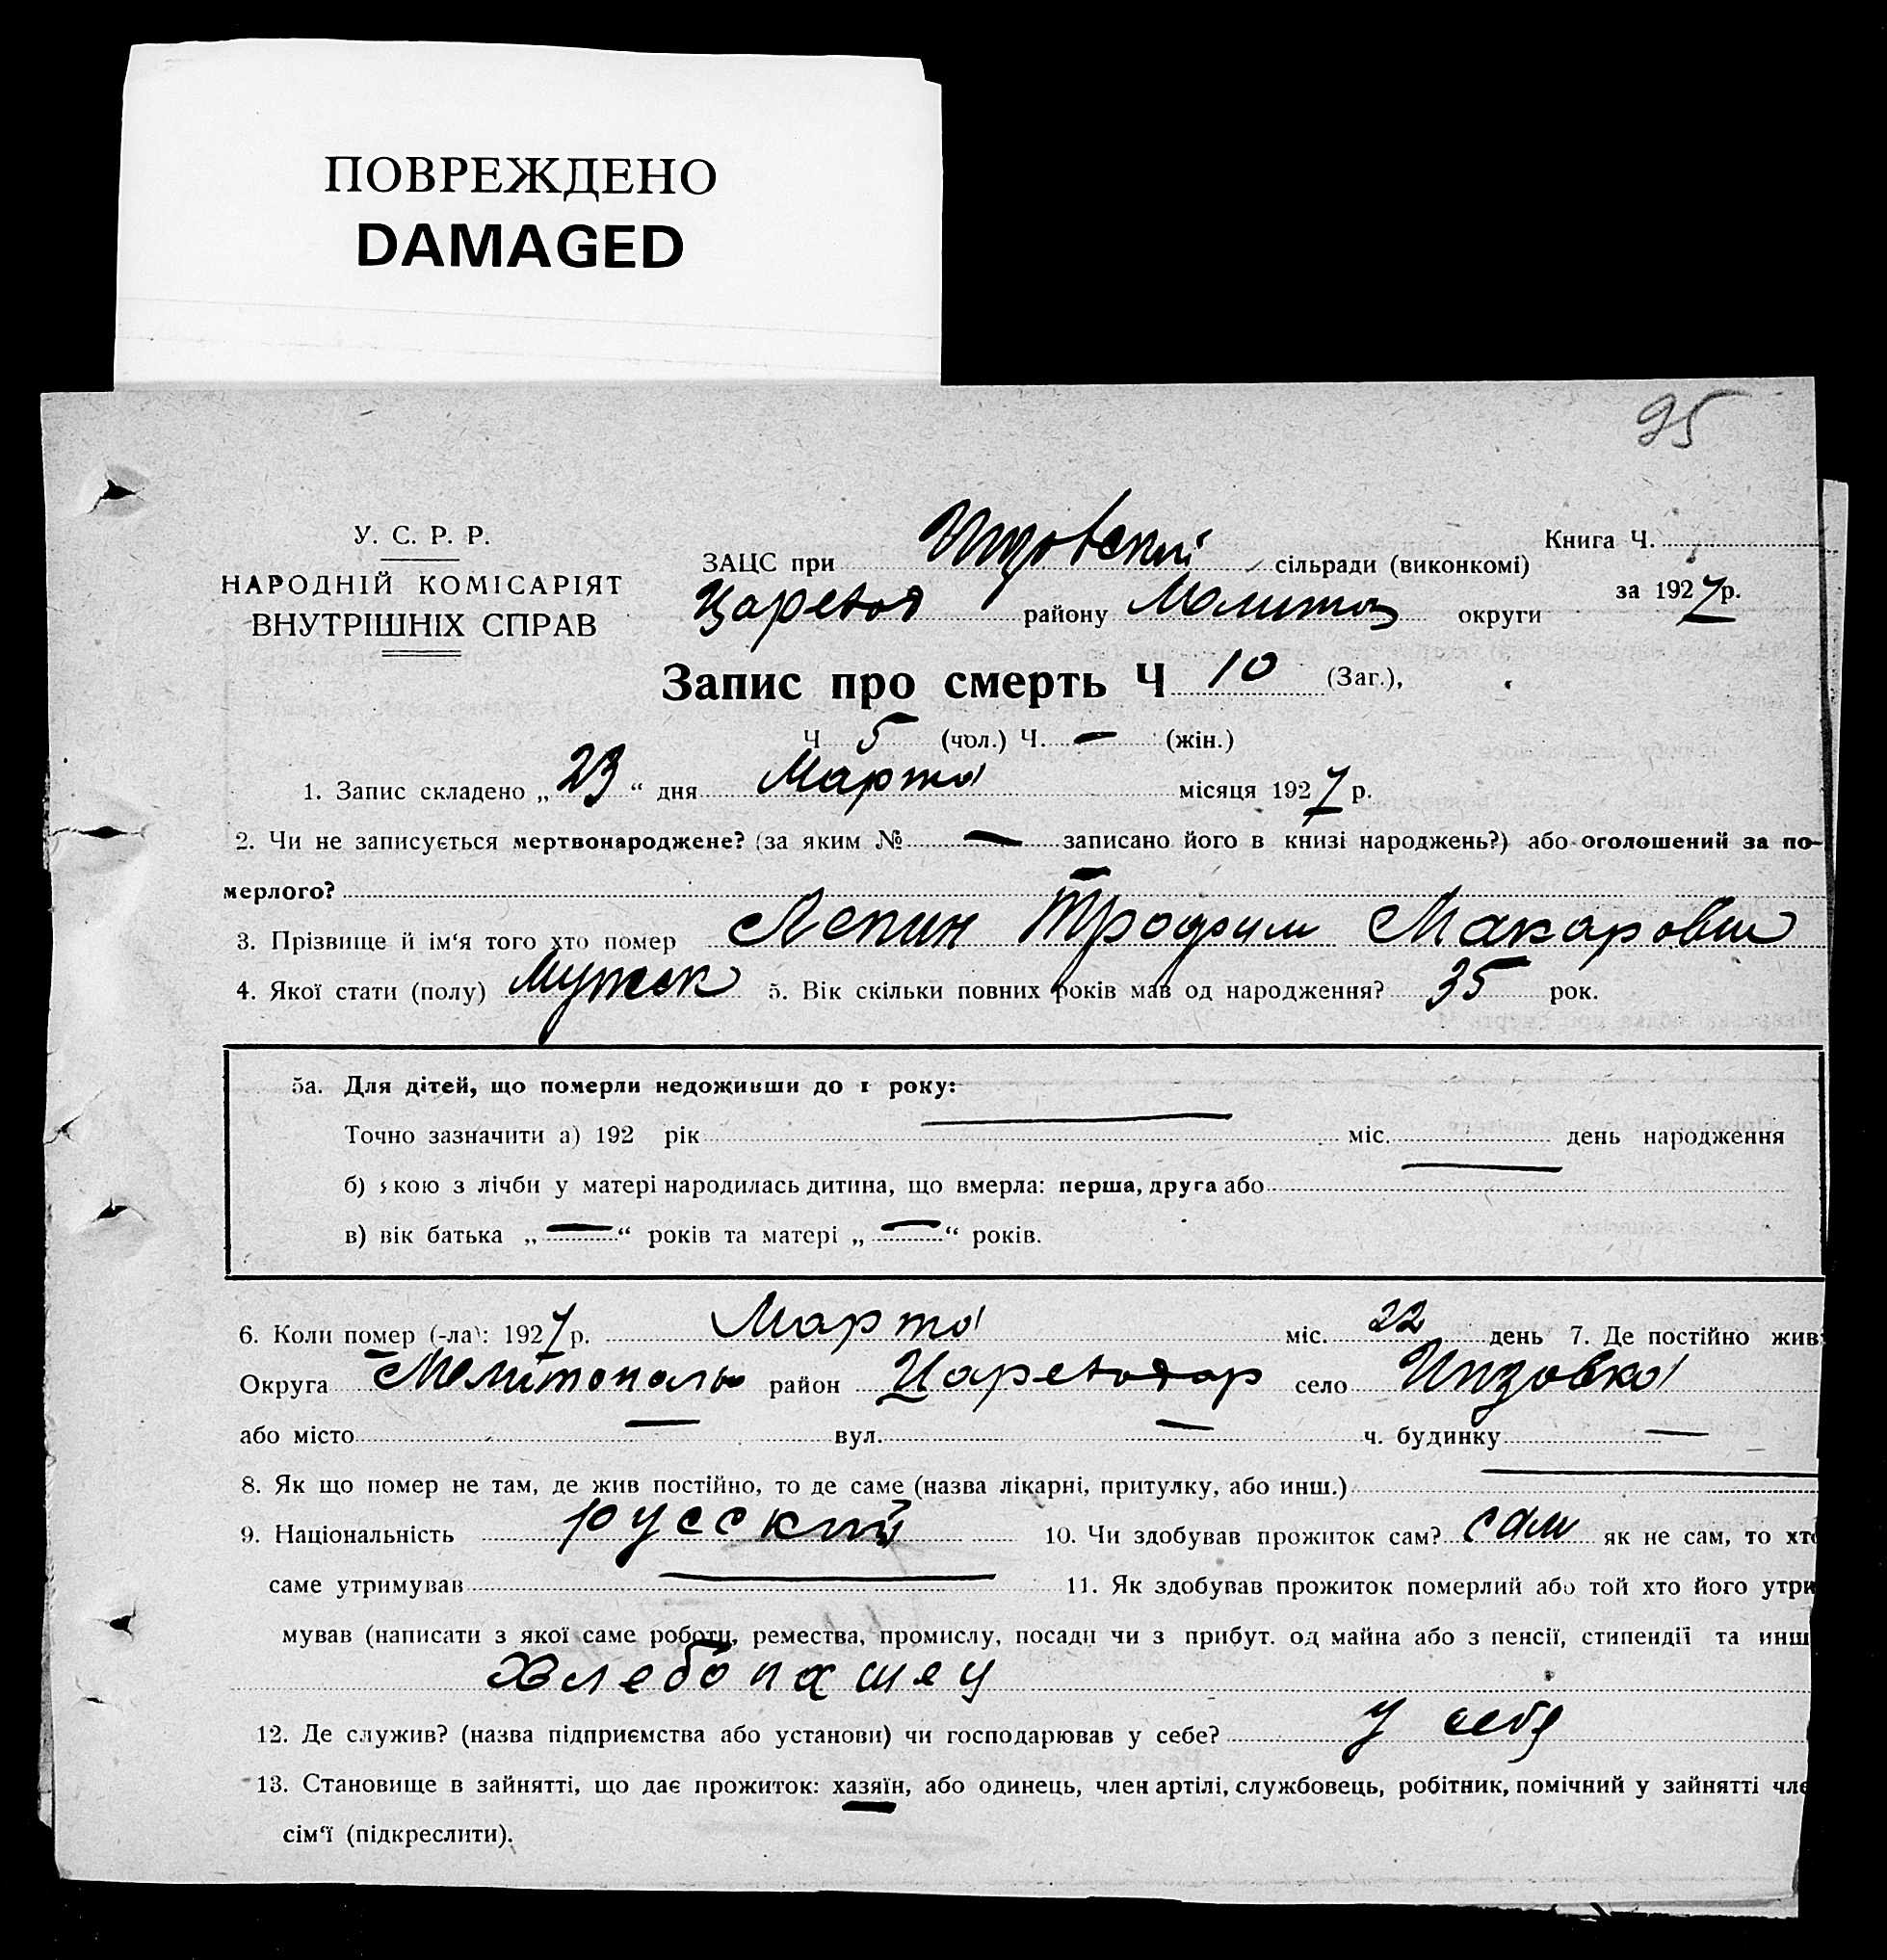 ПОВРЕЖДЕНО
DAMAGED
95
У. С. Р. Р.
НАРОДНІЙ КОМІСАРІЯТ
ВНУТРІШНІХ СПРАВ
ЗАЦС при сільради (виконкомі)
Царевод району Мелитоп округи
Книга Ч.
за 1927р.
Запис про смерть Ч 10 (Заг.),
Ч 5 (чол.) Ч. — (жін.)
1. Запис складено „23“ дня Марта місяця 1927 р.
2. Чи не записується мертвонароджене? (за яким № — записано його в книзі народжень?) або оголошений за по-
мерлого? —
3. Прізвище й ім‘я того хто помер Лепин Трофим Макарович
4. Якої стати (полу) Мужск 5. Вік скільки повних років мав од народження? 35 рок.
5а. Для дітей, що померли недоживши до 1 року:
Точно зазначити а) 192 рік — міс. день народження
б) якою з лічби у матері народилась дитина, що вмерла: перша, друга або —
в) вік батька „—“ років та матері „—“ років.
6. Коли помер (-ла): 1927р. Марта міс. 22 день 7. Де постійно жив
Округа Мелитополь район Цареводар село
або місто — вул. — ч. будинку —
8. Як що помер не там, де жив постійно, то де саме (назва лікарні, притулку, або инш.) —
9. Національність русский 10. Чи здобував прожиток сам? сам як не сам, то хто
саме утримував — 11. Як здобував прожиток померлий або той хто його утри
мував (написати з якої саме роботи, ремества, промислу, посади чи з прибут. од майна або з пенсії, стипендії та инш
Хлебопашец
12. Де служив? (назва підприємства або установи) чи господарював у себе? у себя
13. Становище в зайнятті, що дає прожиток: хазяїн, або одинець, член артілі, службовець, робітник, помічний у зайнятті чле
сім‘ї (підкреслити).